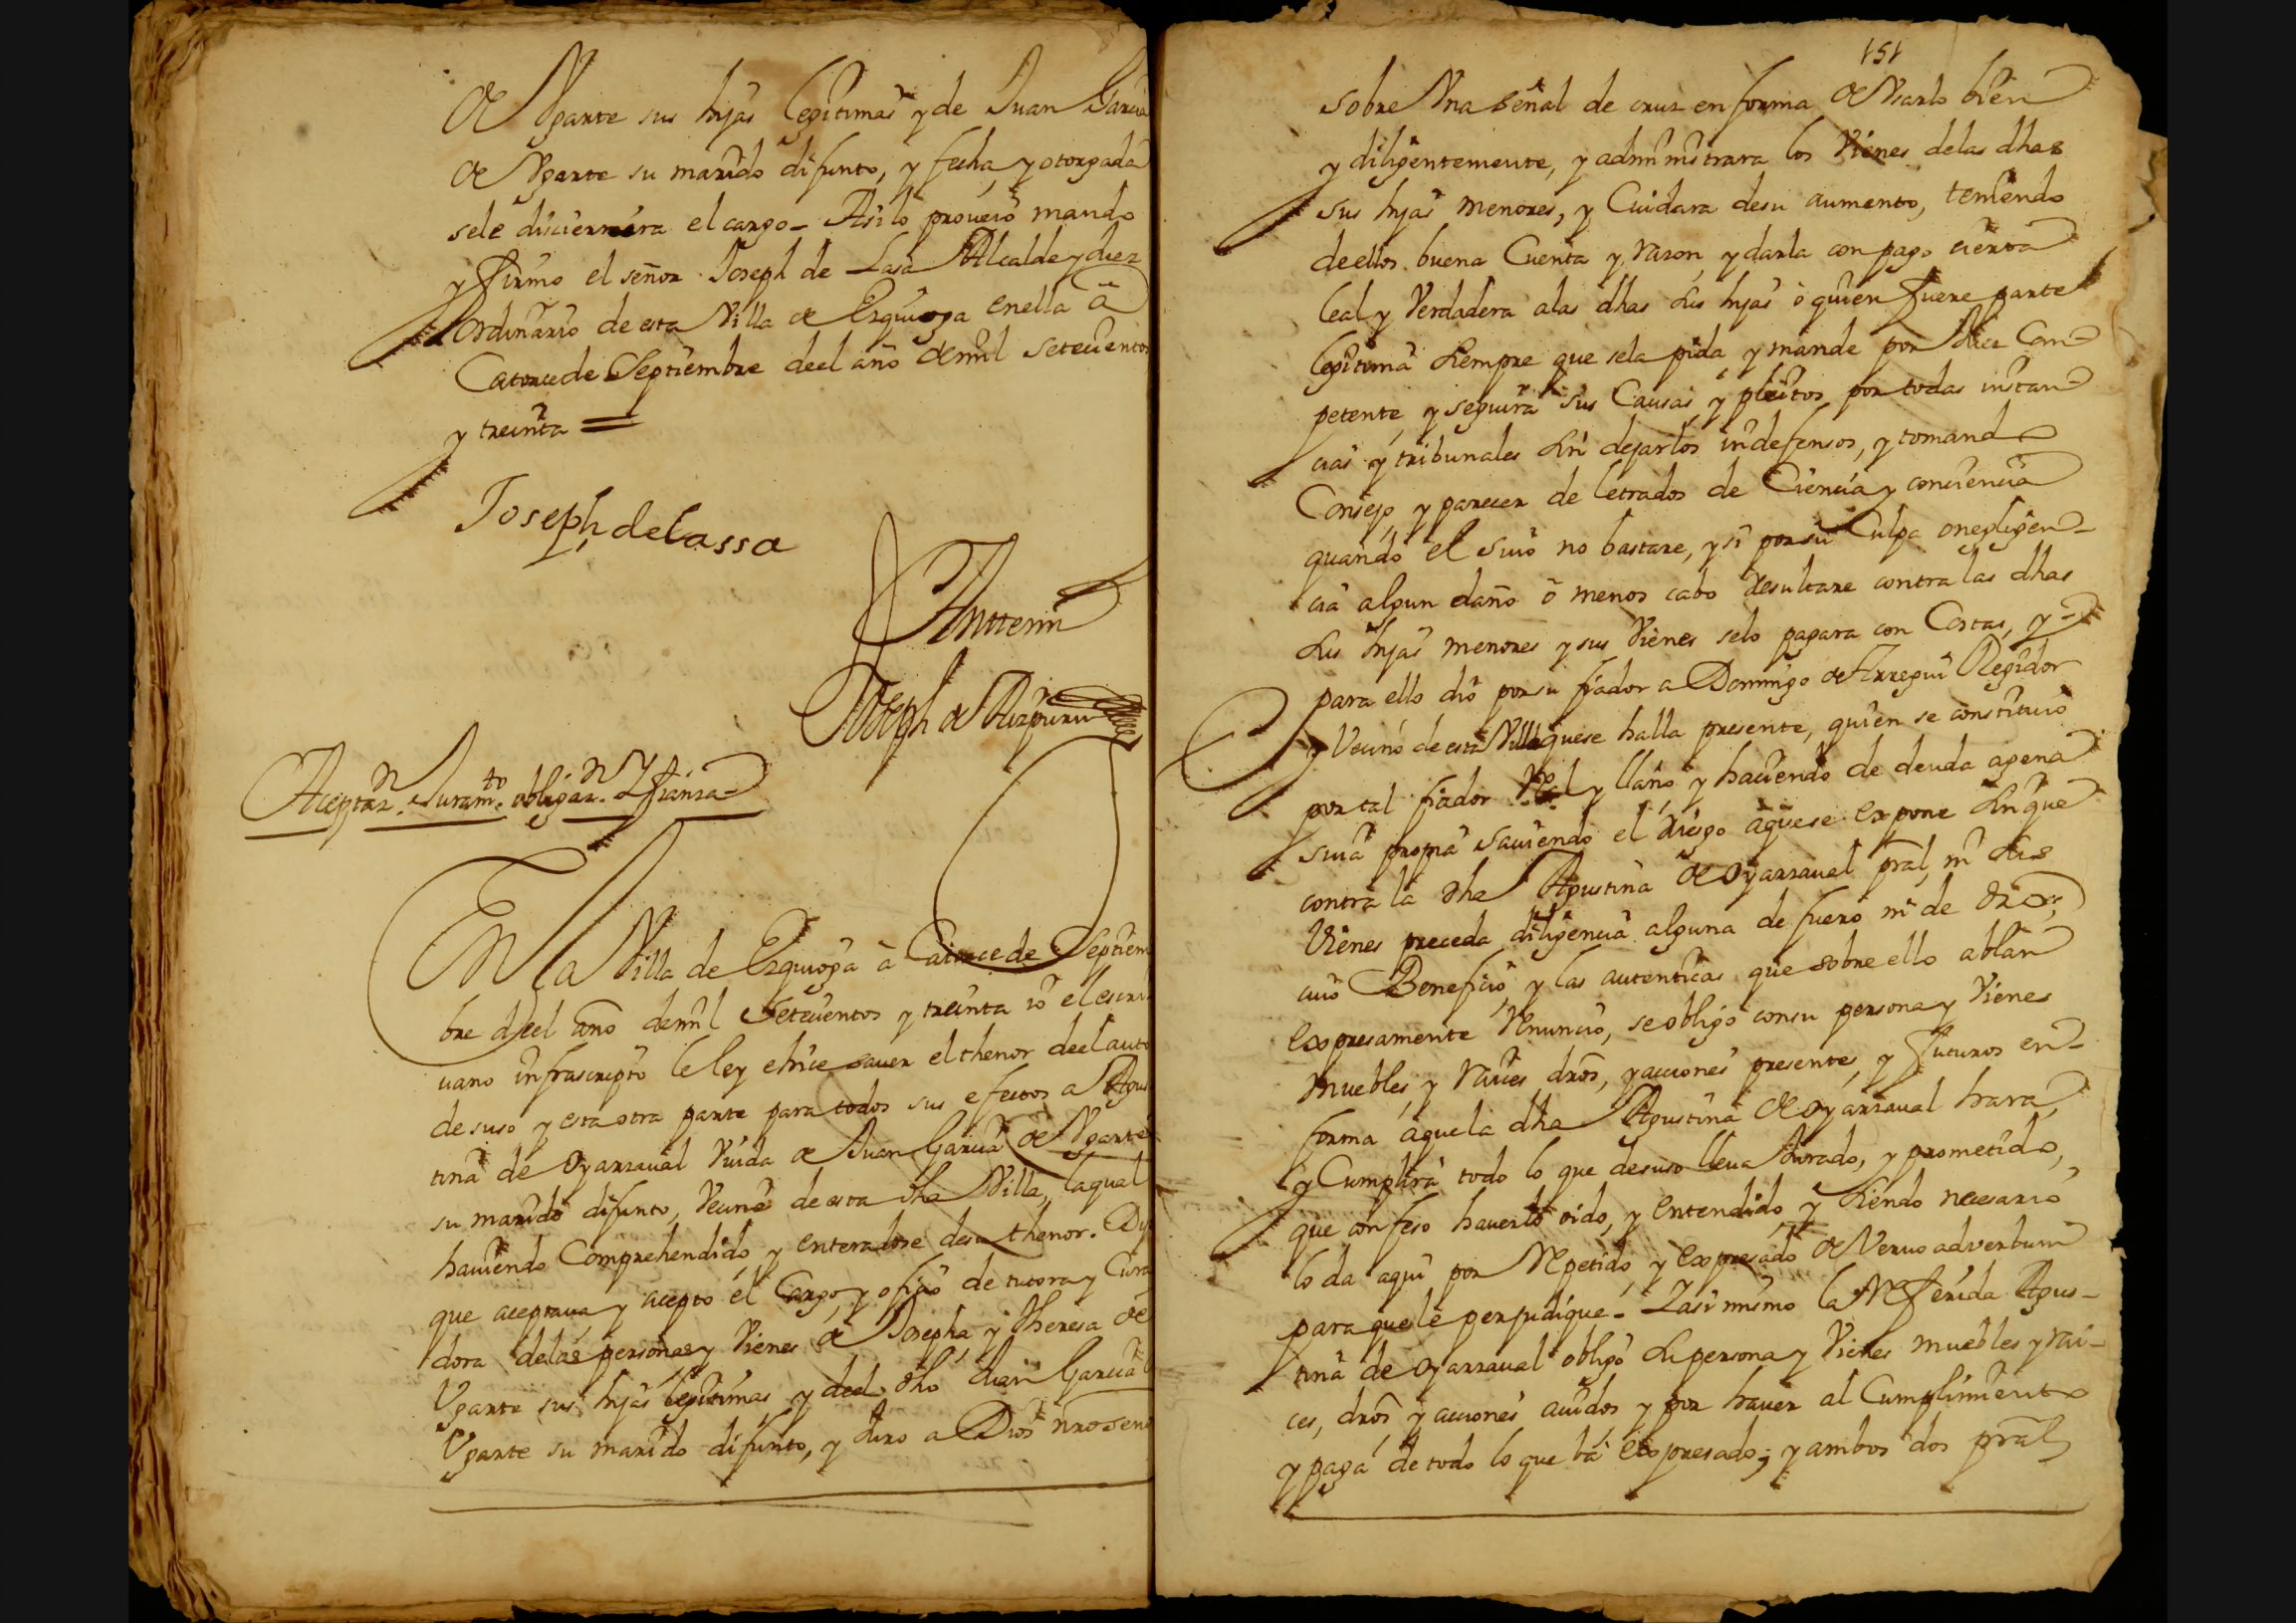 de Vgarte sus hijas legitimas y de Juan Garcia
de Vgarte su marido difunto, y fecha y otorgada
sele discernira el cargo - Asilo proveio mando
y firmo el señor Joseph de Lasa Alcalde y Juez
ordinario de esta Villa de Ezquioga enella à
Catorce de Septiembre deel año de mil setecientos
y treinta =
Joseph de Lassa
Antte mi
Joseph de Aizpuru
Aceptaz.n Juram.to obligaz.n Y fianza
En la Villa de Ezquioga à Catorce de Septiem
bre deel año de mil Setecientos y treinta io el escri
uano infrascripto le ley e hice sauer el thenor deel auto
de suso y esta otra parte para todos sus efectos a Agus
tina de Oyarzaual Viuda de Juan Garcia de Vgarte
su marido difunto, Vecina de esta dha Villa, la qual
hauiendo Comprehendido, y enteradose desu thenor. Dijo
que aceptaua y acepto el Cargo, y ofizio de tutora y Cura
dora delas personas y Vienes de Josepha y Theresa de
Vgarte sus hijas legitimas y deel dho Juan Garcia
Vgarte su marido difunto, y Juro a Dios nro seño
151
sobre Vna señal de cruz en forma de Vsarlo bien
y diligentemente, y administrara los Vienes delas dhas
sus hijas menores, y Cuidara desu aumento, teniendo
de ellos buena Cuenta y razon, y darla con pago cierta
leal y Verdadera alas dhas sus hijas ò quien fuere parte
legitima siempre que sela pida, y mande por Juez Com
petente, y seguira sus Causas y pleitos por todas instan
cias y tribunales sin dejarlos indefensos, y tomand
Consejo, y parecer de letrados de Ciencia y conciencia
quando el suio no bastare, y si por su Culpa o negligen-
cia algun daño ò menos cabo Resultare contra las dhas
sus hijas menores y sus Vienes selo pagara con Costas, y
para ello dio por su fiador a Domingo de Arregui Regidor
y Vecino de esta Villa quese halla presente, quien se constituio
por tal fiador y llano y haciendo de deuda agena
suia propia sauiendo el riesgo aquese expone sin que
contra la dha Agustina de Oyarzaual pral, ni sus
Vienes preceda diligencia alguna de fuero ni de dro,
cuio Beneficio y las autenticas que sobre ello ablan
expresamente Renuncio, se obligo consu persona y Vienes
muebles, y raices dros, y acciones presente, y futuros en-
forma aquela dha Agustina de Oyarzaual hara,
y Cumplira todo lo que desuso lleua Jurado, y prometido,
que confeso hauerlo oido, y entendido, y siendo necesario
lo da aqui por Repetido, y expresado de Veruo adverbum
para quele perjudique - Y asi mismo la Referida Agus-
tina de Oyarzaual obligò su persona y Vienes muebles y rai-
ces, dros, y acciones auidos y por hauer al Cumplimiento
y paga de todo lo que va expresado; y ambos dos pral,